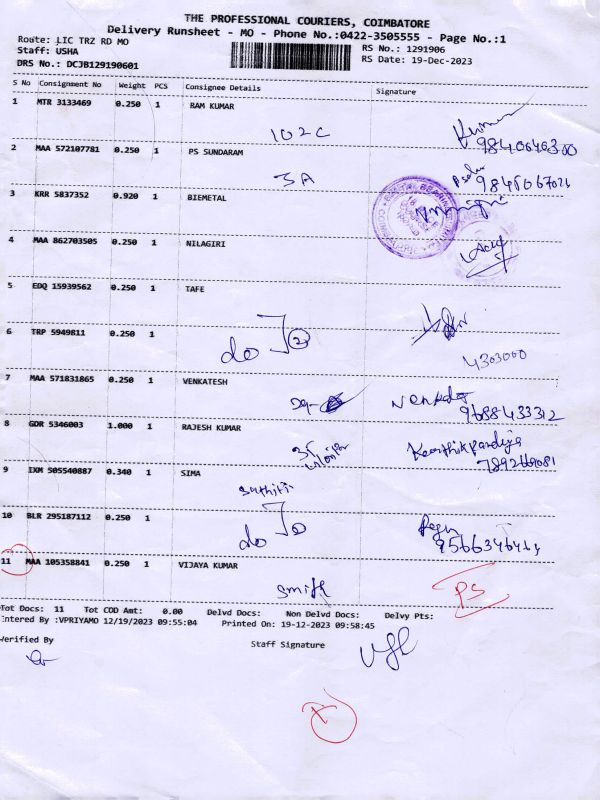 THE PROFESSIONAL COURIERS, COIMBATORE
Delivery Runsheet - MO - Phone No.:0422-3505555 - Page No.:1
Route: LIC TRZ RD MO RS No.: 1291906
Staff: USHA RS Date: 19-Dec-2023
DRS No.: DCJB129190601
S No Consignment No Weight PCS Consignee Details Signature
1 MTR 3133469 0.250 1 RAM KUMAR
102C
2 MAA 572107781 0.250 1 PS SUNDARAM
3A
3 KRR 5837352 0.920 1 BIEMETAL
4 MAA 862703505 0.250 1 NILAGIRI
5 EDQ 15939562 0.250 1 TAFE
6 TRP 5949811 0.250 1
do 2
4303000
7 MAA 571831865 0.250 1 VENKATESH
9688433312
8 GDR 5346003 1.000 1 RAJESH KUMAR
35
7892669081
9 IXM 505540887 0.340 1 SIMA
10 BLR 295187112 0.250 1
do
11 MAA 105358841 0.250 1 VIJAYA KUMAR
Smith PS
Tot Docs: 11 Tot COD Amt: 0.00 Delvd Docs: Non Delvd Docs: Delvy Pts:
Entered By :VPRIYAMO 12/19/2023 09:55:04 Printed On: 19-12-2023 09:58:45
Verified By Staff Signature